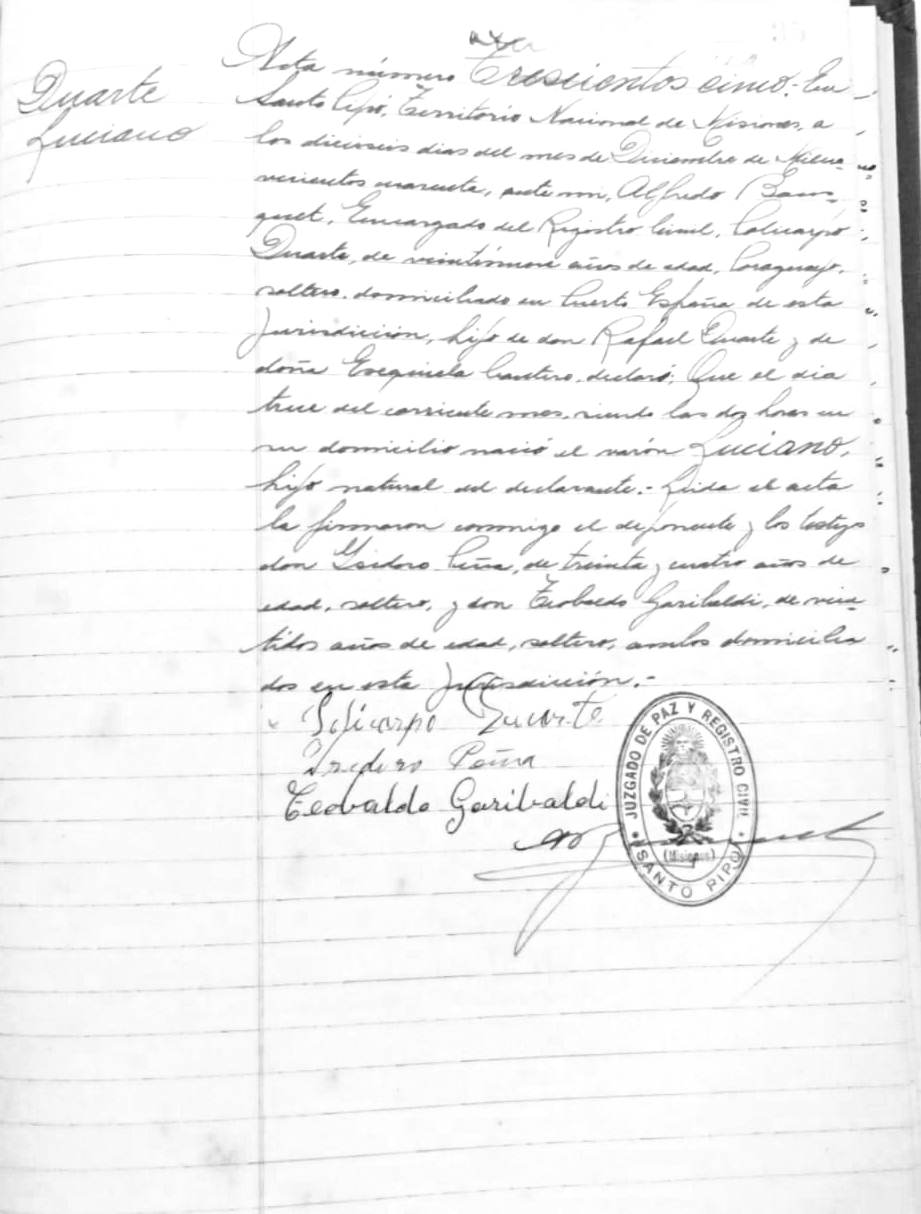 Duarte
Luciano
Acta número Trescientos cinco.- En
Santo Pipó, Territorio Nacional de Misiones, a
los dieciseis dias del mes de Diciembre de Mil no-
vecientos cuarenta, ante mi, Alfredo Bous-
quet, Encargado del Registro Civil, Policarpo
Duarte, de veintinueve años de edad, Paraguayo,
soltero, domiciliado en Puerto España de esta
Jurisdicción, hijo de don Rafael Duarte y de
doña Cantero, declaró: Que el dia
trece del corriente mes, siendo las dos horas en
su domicilio nació el varón Luciano,
hijo natural del declarante.- Leida el acta
la firmaron conmigo el deponente y los testigos
don Ysidoro Peña, de treinta y cuatro años de
edad, soltero, y don Teobaldo Garibaldi, de vein-
tidos años de edad, soltero, ambos domicilia
dos en esta Jurisdicción.-
Policarpo Duarte
Ysidoro Peña
Teobaldo Garibaldi
JUZGADO DE PAZ Y REGISTRO CIVIL
(Misiones)
SANTO PIPO